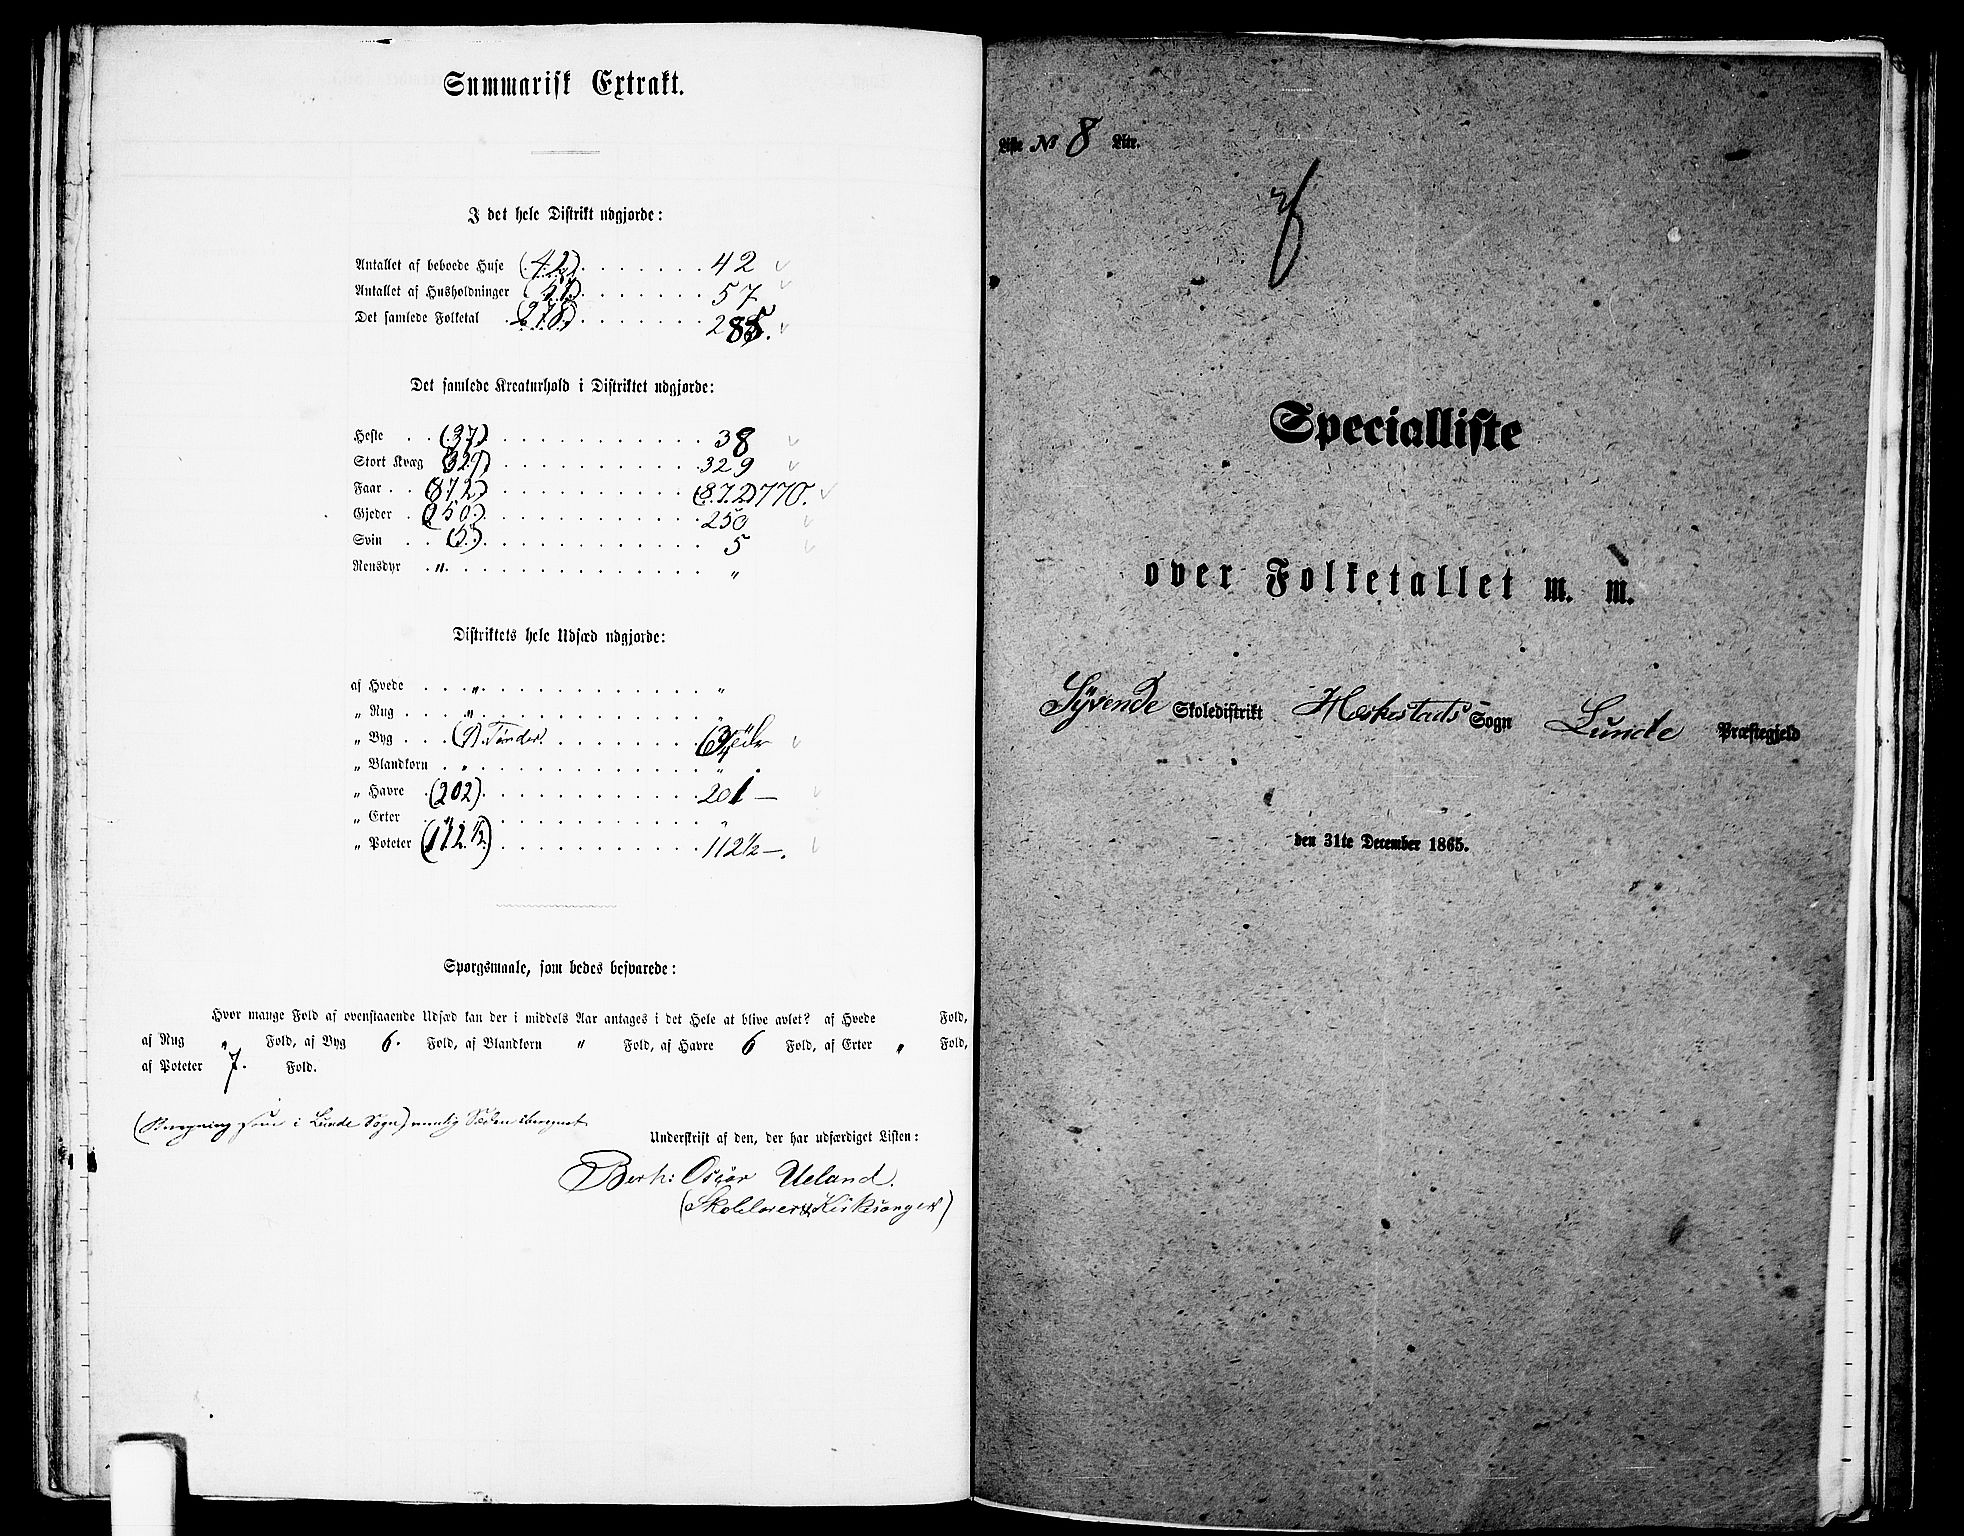 Summarisk Extrakt.
I det hele Distrikt udgjorde:
Antallet af beboede Huse (42) . . . . . . . 42
Antallet af Husholdninger . . . . . . . 57
Det samlede Folketal (278) . . . . . . . 285.
Det samlede Kreaturhold i Distriktet udgjorde:
Heste . . (37) . . . . . . . 38
Stort Kvæg (329) . . . . . . . 329
Faar . . (872) . . . . . . . (872) 770.
Gjeder . (250) . . . . . . . 250
Svin . . (5) . . . . . . . 5
Rensdyr . " . . . . . . . "
Distriktets hele Udsæd udgjorde:
af Hvede . . . " . . . . . . . "
„ Rug . . . " . . . . . . . "
„ Byg . . . Tønder . . . . . . .
„ Blandkorn . " . . . . . . . "
„ Havre . (202) . . . . . . . 201 —
„ Erter . " . . . . . . . "
„ Poteter (112 ½) . . . . . . . 112½ —.
Spørgsmaale, som bedes besvarede:
Hvor mange Fold af ovenstaaende Udsæd kan der i middels Aar antages i det Hele at blive avlet? af Hvede Fold,
af Rug " Fold, af Byg 6. Fold, af Blandkorn " Fold, af Havre 6 Fold, af Erter " Fold,
af Poteter 7. Fold.
som i Lunde Sogn) nemlig Sæden
Underskrift af den, der har udfærdiget Listen:
Berth: Oscar Ueland.
(Skolelærer & Kirkesanger)
Liste No 8 Litr.
Specialliste
over Folketallet m. m.
Syvende Skoledistrikt Heskestads Sogn Lunde Præstegjeld
den 31te December 1865.